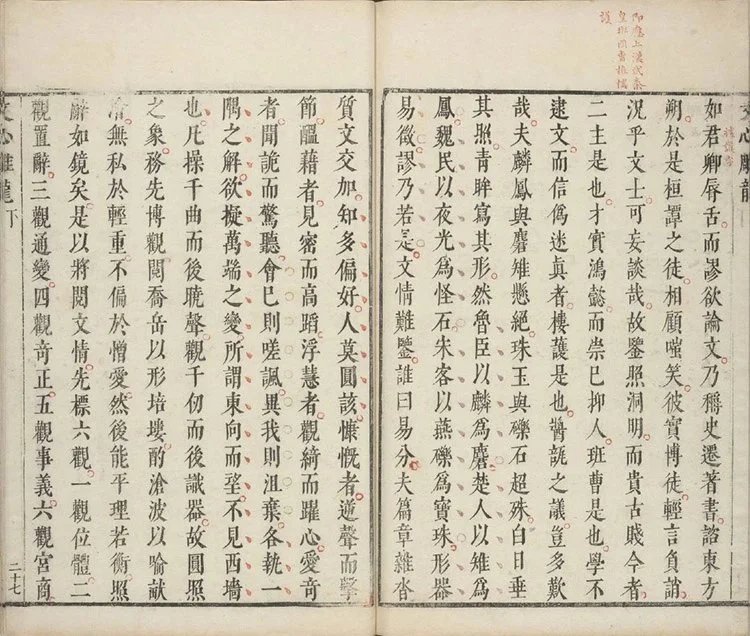 文心雕龍
如君卿辱舌而謬欲論文乃稱史遷著書諮東方
朔於是桓譚之徒相顧嗤笑彼實博徒輕言負誚
況乎文士可妄談哉故鑒照洞明而貴古賤今者
二主是也才實鴻懿而崇已抑人班曹是也學不
逮文而信僞迷眞者樓護是也醬瓿之議豈多歎
哉夫麟鳳與麏雉懸絕珠玉與礫石超殊白日垂
其照青眸寫其形然魯臣以麟爲麏楚人以雉爲
鳳魏民以夜光爲怪石宋客以燕礫爲寶珠形器
易徵謬乃若是文情難鑒誰曰易分夫篇章雜沓
質文交加知多偏好人莫圓該慷慨者逆聲而擊
節醞藉者見密而高蹈浮慧者觀綺而躍心愛奇
者聞詭而驚聽會已則嗟諷異我則沮棄各執一
隅之解欲擬萬端之變所謂東向而望不見西墻
也凡操千曲而後曉聲觀千仞而後識器故圓照
之象務先博觀閱喬岳以形培塿酌滄波以喻畎
澮無私於輕重不偏於憎愛然後能平理若衡照
辭如鏡矣是以將閱文情先標六觀一觀位體二
觀置辭三觀通變四觀奇正五觀事義六觀宮商
文心雕龍下
二十七